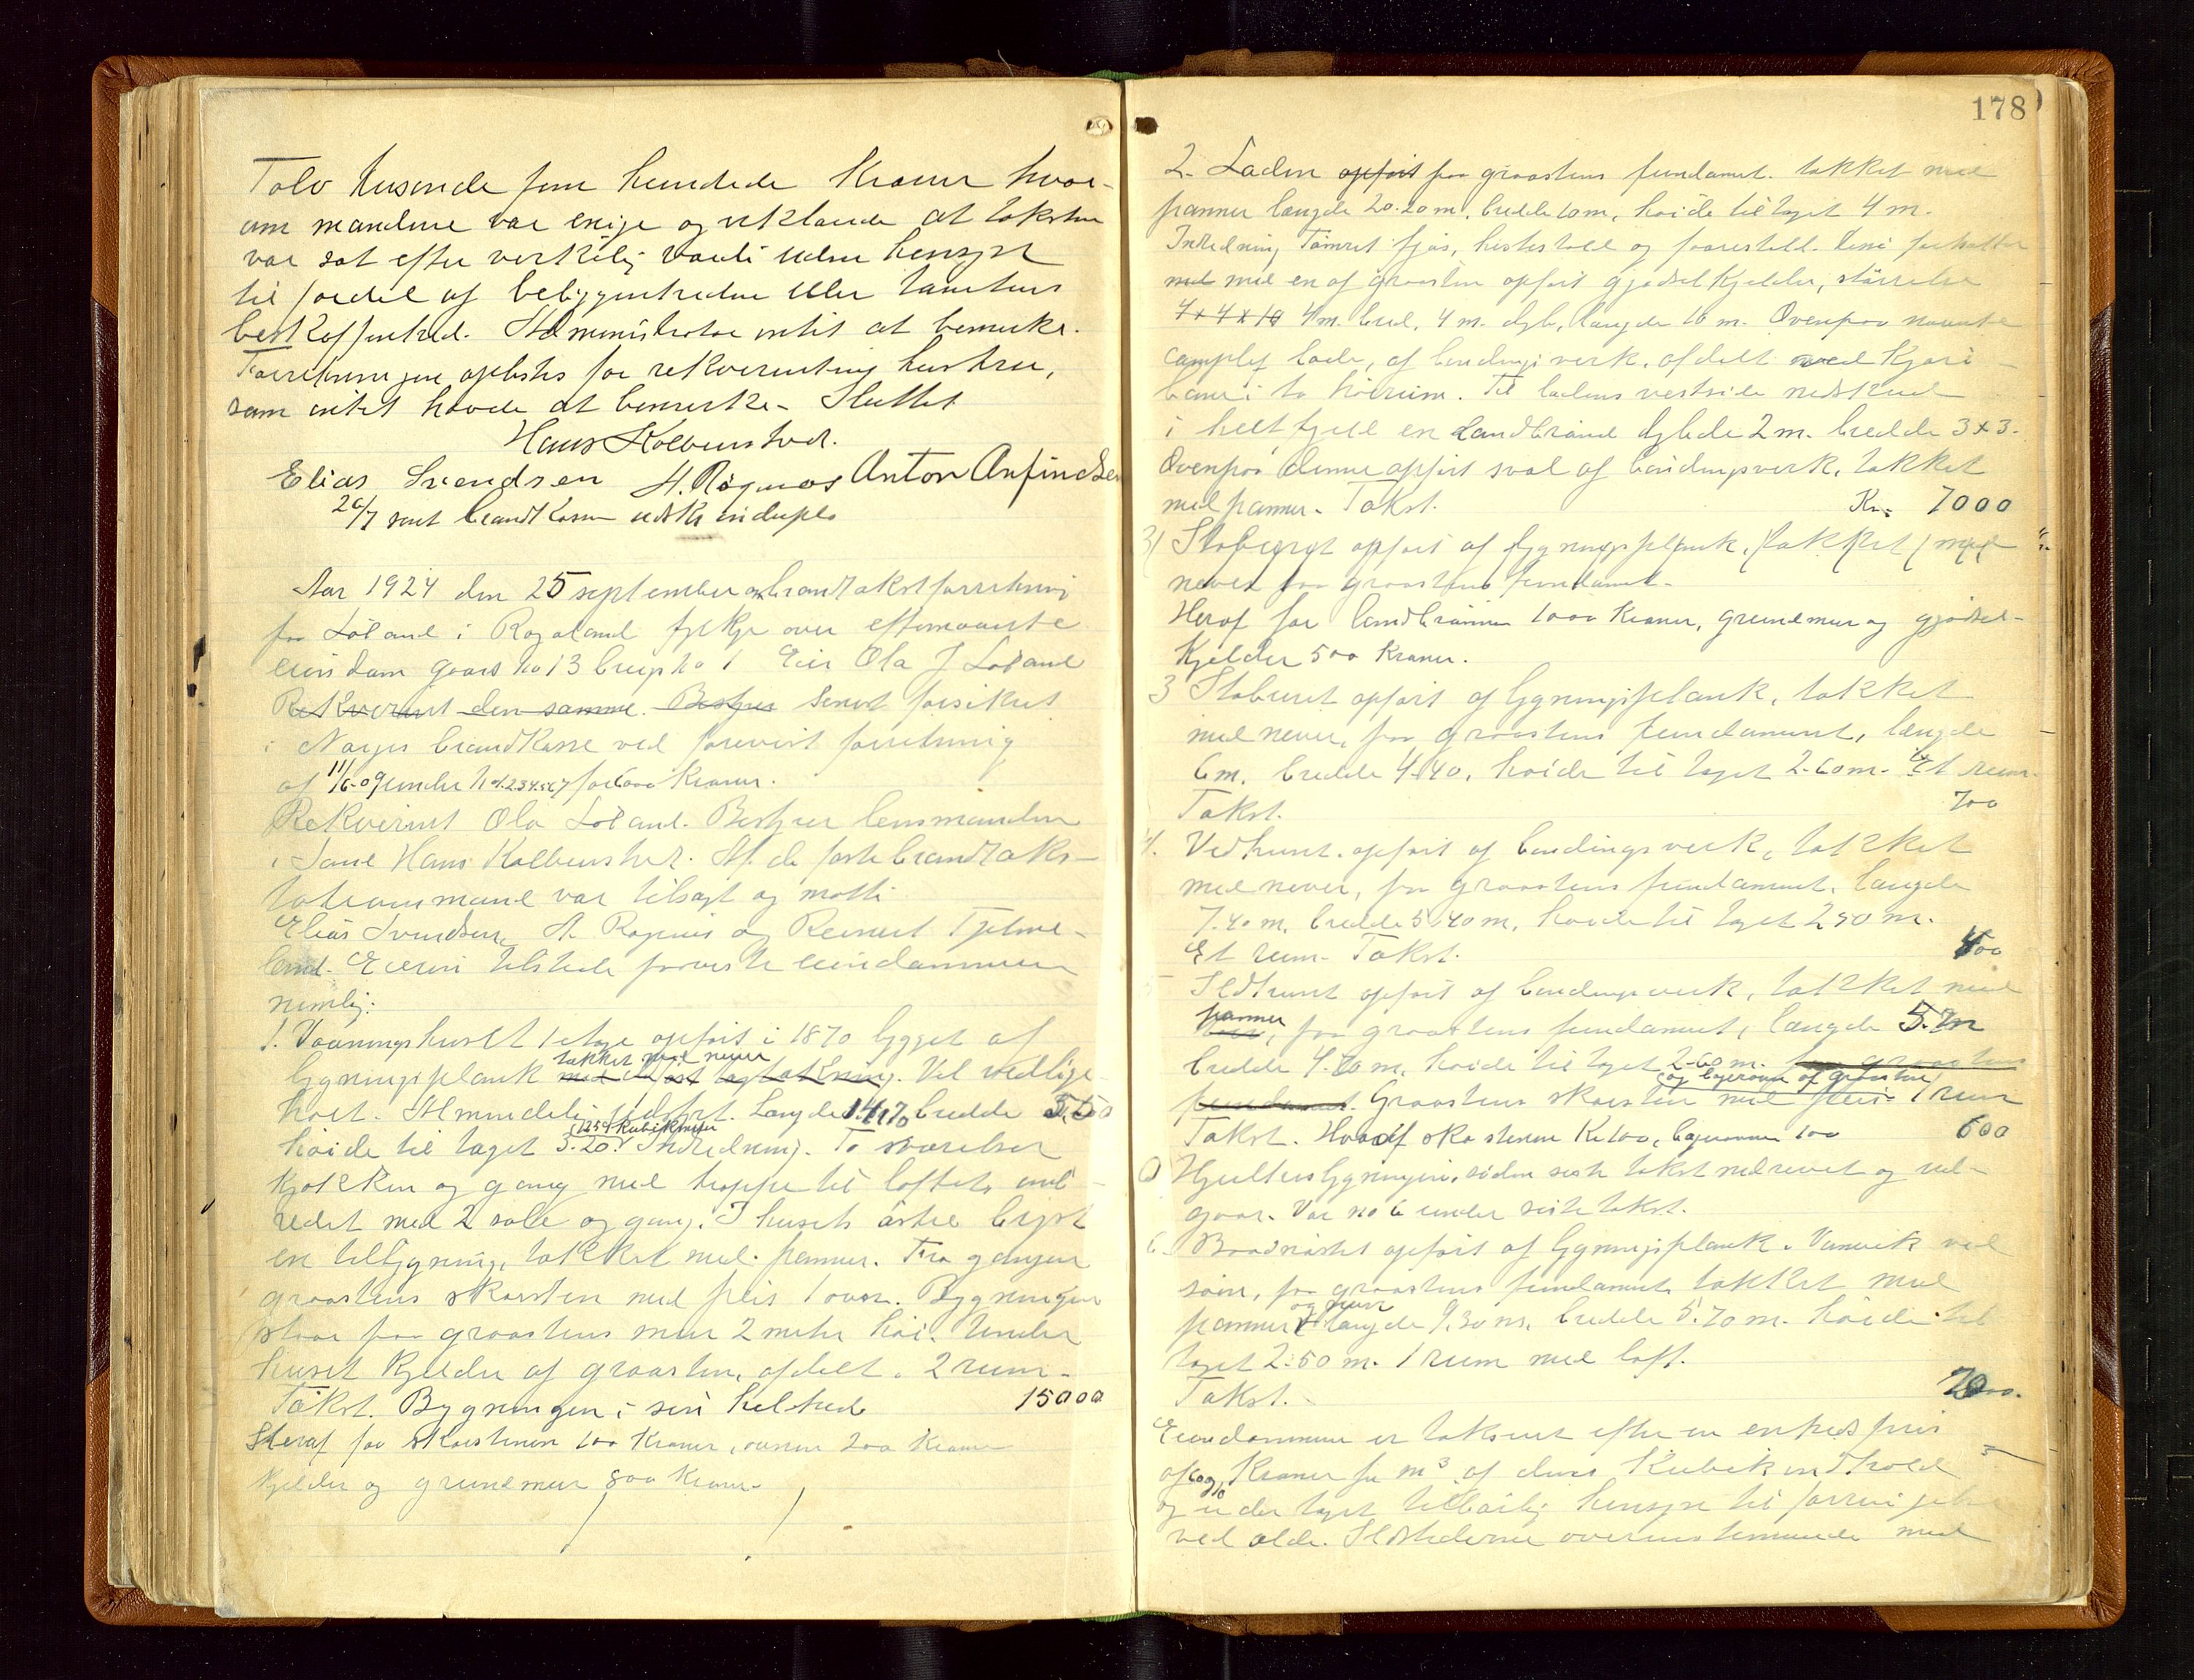 Tolv tusende fem hundrede Kroner hvor-
om mændene var enige og erklærede at taksten
var sat efter verkelig værdi uden hensyn
til fordel af beliggenheden eller tomtens
beskaffenhed. Administrator intet at bemerke.
Forretningen oplæstes for rekvirentens hustru,
som intet havde at bemerke - Sluttet
Hans Kolbenstvedt.
Elias Svendsen A. Rögnæs Anton Anfindsen
26/7 sent brandkassen udskr. in duplo
Aar 1924 den 25 september brandtakstforretning
paa Løland i Rogaland fylke over efternævnte
eiendom gaards no 13 brugs no 1 Eier Ola J Løland
Rekvirent den samme. Bestyrer Senest forsikret
i Norges brandkasse ved forevist forretning
af 11/6-09 under no 1.2.3.4.5.6.7 for 6000 Kroner.
Rekvirent Ola Løland. Bestyrer lensmanden
i Hans Kolbenstvedt. Af de faste brandtaks-
tationsmænd var tilsagt og møtte
Elias Svendsen, A. Rögnæs og Reinert Tjelme-
land. Eieren tilstede foreviste eiendommen
nemlig:
1. Vaaningshuset 1 etage opført i 1870 bygget af
takket med never
bygningsplank med . Vel vedlige-
holdt. Almindelig udstyrt. Længde 14.70 bredde 5.50
(259 kubikmeter
høide til taget 3.20. Indredning. To værelser
kjøkken og gang med trappe til loftet, ind-
redet med 2 sale og gang. I husets østre bryst
en tilbygning, takket med panner. Fra gangen
graastens skorsten med peis 1 ovn. Bygningen
staar paa graastens mur 2 meter høi. Under
huset kjelder af graasten, afdelt i 2 rum -
Takst. Bygningen i sin helhed 15000
Heraf for skorstenen 100 Kroner, ovnen 200 Kroner
Kjelder og grundmur 800 Kroner
178
2. Laden opført paa graastens fundament. takket med
panner længde 20.20 m, bredde 10 m, høide til taget 4 m.
Indredning Tømret fjøs, hestestald og faarestald. Disse forholder
med med en af graasten opført gjødselkjelder, størrelse
4 x 4 x 10 4 m. bred, 4 m. dyb, længde 10 m. Ovenpaa nævnte
lade, af bindingsverk. afdelt med kjøre-
bane i to høirum. Til ladens vestside nedskudt
i helt fjeld en Landbrønd dybde 2 m. bredde 3 x 3.
Ovenpaa denne opført sval af bindingsverk, takket
med panner. Takst. Kr. 7000
3) Stabburet opført af bygningsplank, takket med
never paa graastens fundament.
Heraf for landbrønnen 1000 Kroner, grundmur og gjødsel-
kjelder 500 Kroner.
3 Stabburet opført af bygningsplank, takket
med never, paa graastens fundament, længde
6 m. bredde 4.40, høide til taget 2.60 m. Et rum.
Takst. 700
4. Vedhuset. opført af bindingsverk, takket
med never, paa graastens fundament, længde
7.40 m, bredde 5.40 m, høide til taget 2.50 m.
Et rum. Takst. 400
Ildhuset opført af bindingsverk, takket med
panner
, paa graastens fundament, længde 5. m
bredde 4.20 m, høide til taget 2.60 m. paa graastens
og bagerovn af graasten
fundament. Graastens skorsten med peis. 1 rum
Takst. Hvoraf skorstenen Kr 100, bagerovnen 100 600
Hjeltersbygningen, siden siste takst nedrevet og ud-
gaar. Var no 6 under siste takst.
6. Baadnøstet opført af bygningsplank. Vanvik ved
søen, paa graastens fundament takket med
og never
panner længde 9.30 m, bredde 5.70 m. høide til
taget 2.50 m. 1 rum med loft.
Takst.
Eiendommen er takseret efter en enhedspris
af Kroner pr m³ af dens kubikindhold
og er der taget tilbørlig hensyn til forringelse
ved ælde. Ildstederne overensstemmende med